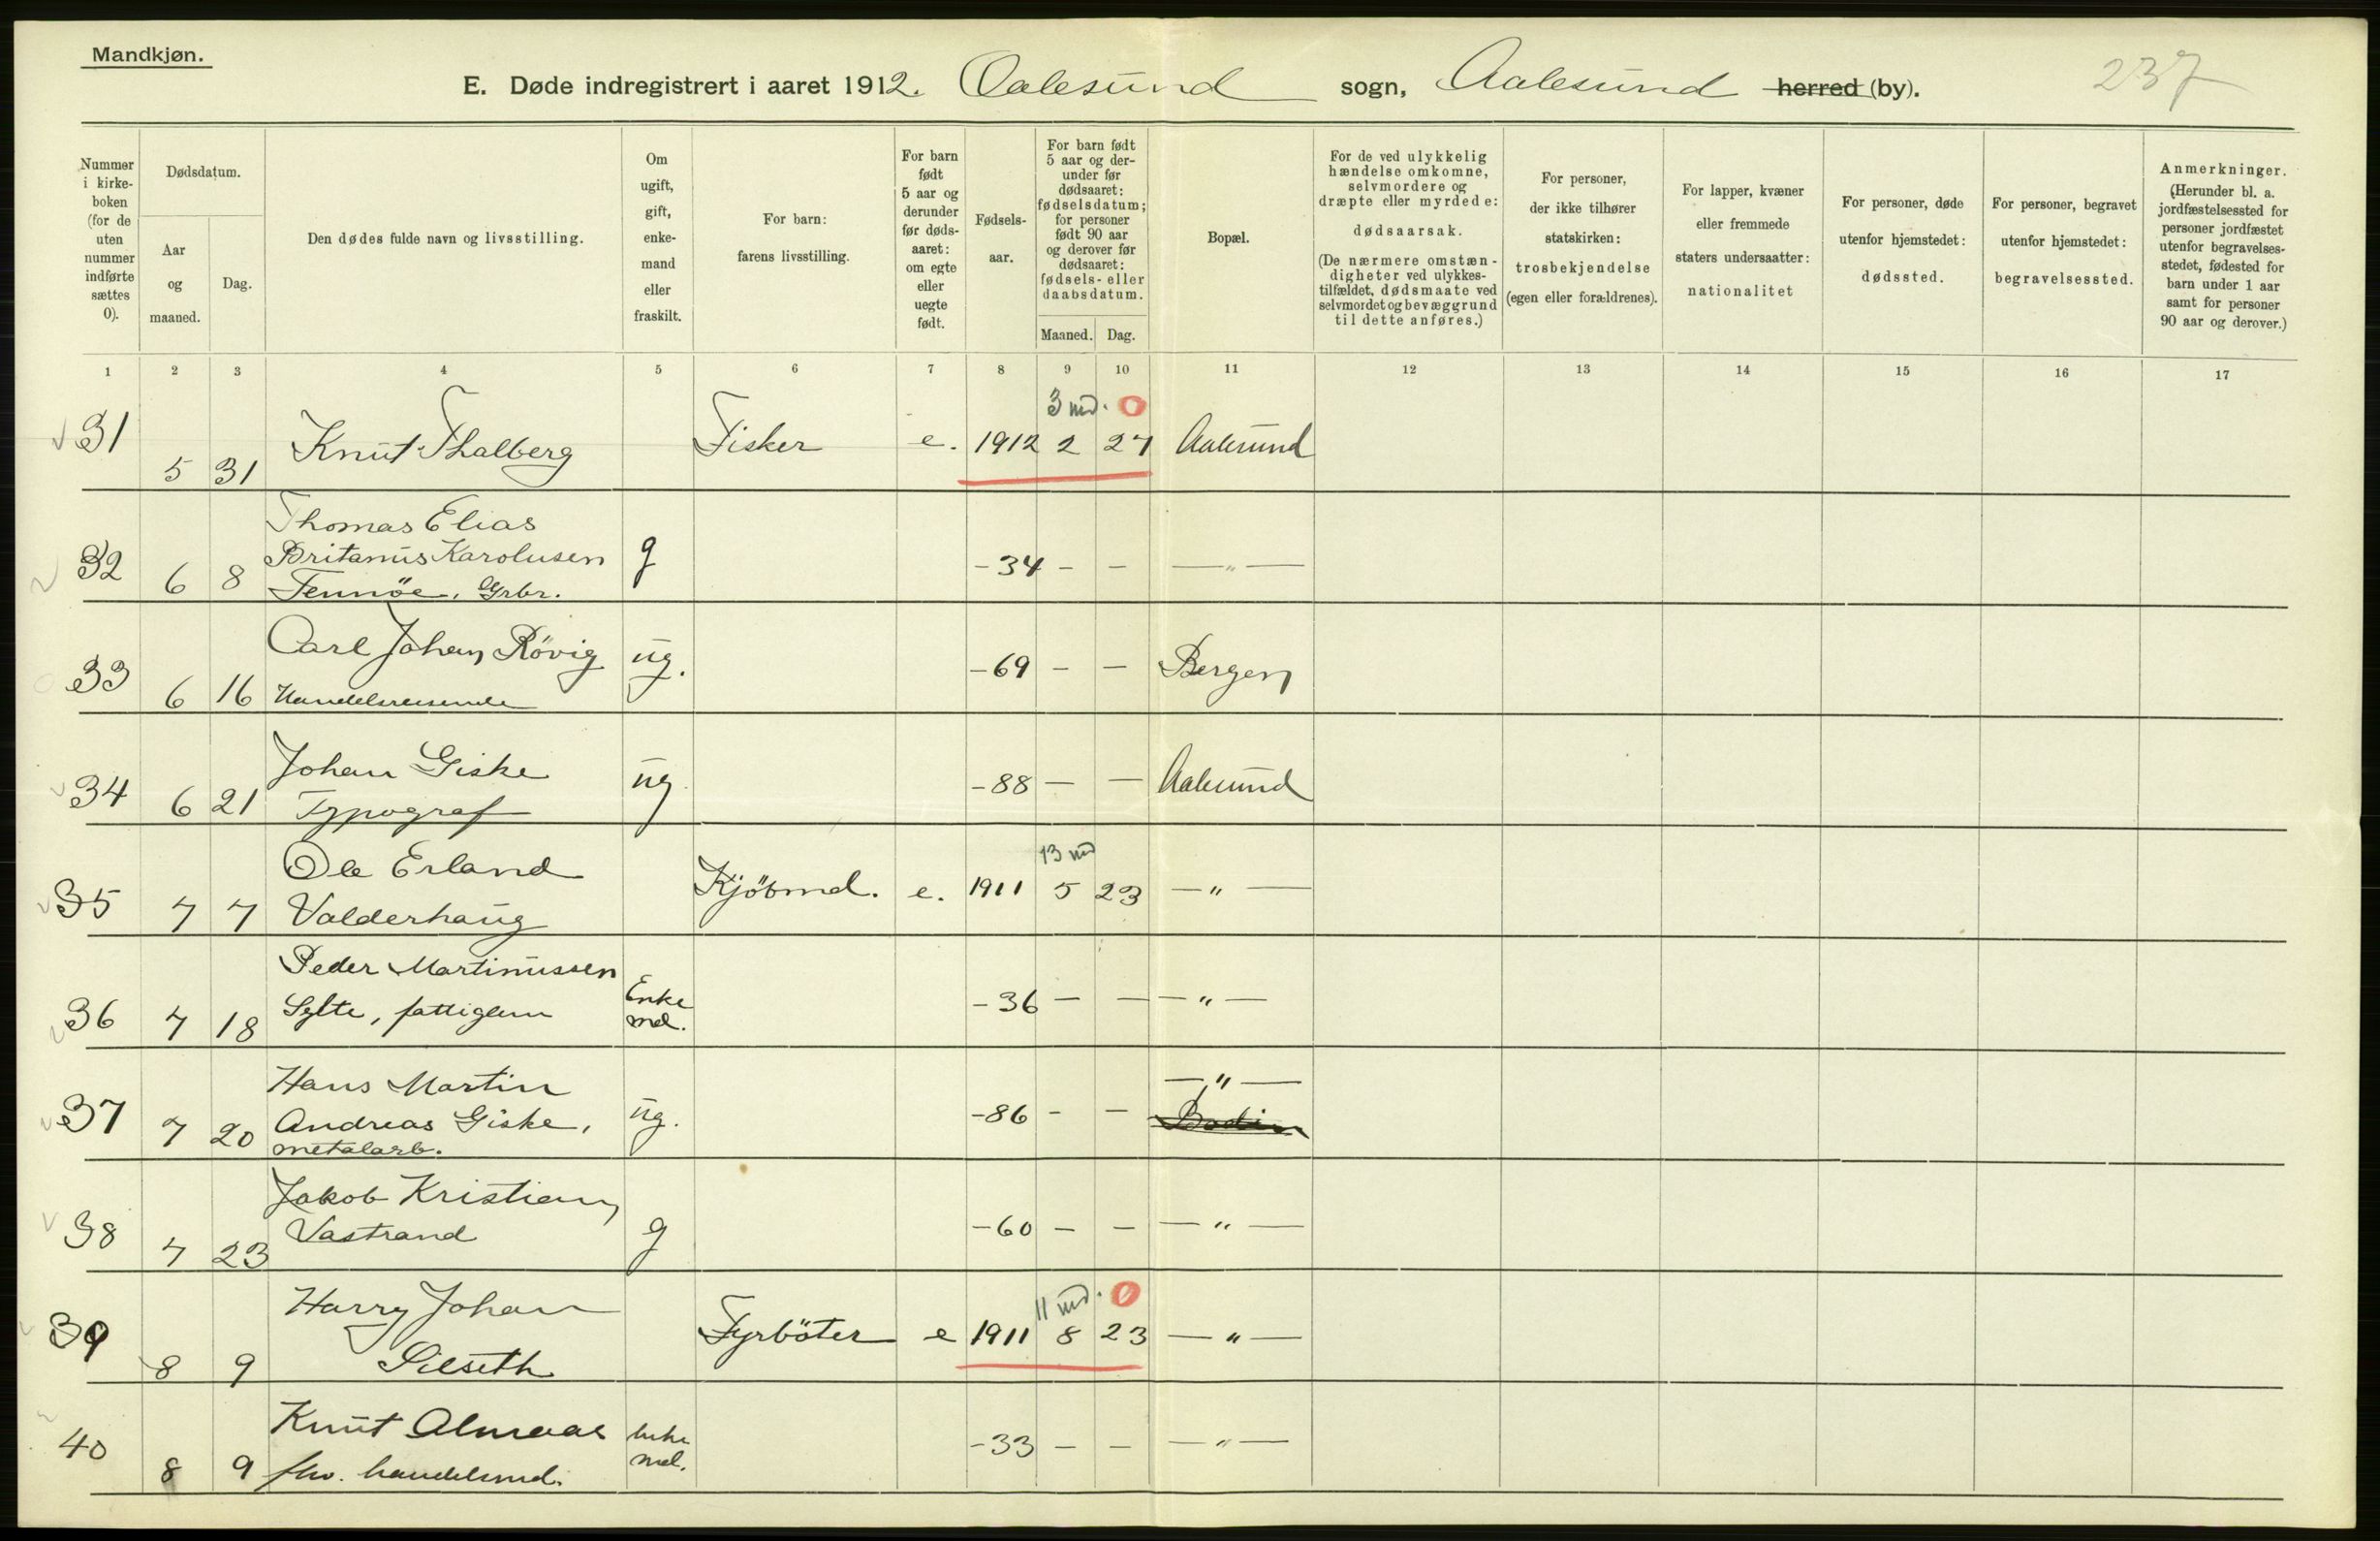 Mandkjøn.
E. Døde indregistrert i aaret 1912. Aalesund sogn, Aalesund herred (by). 237
Nummer i kirke-boken (for de uten nummer indførte sættes 0).
Dødsdatum.
Aar og maaned.
Dag.
Den dødes fulde navn og livsstilling.
Om ugift, gift, enke-mand eller fraskilt.
For barn: farens livsstilling.
For barn født 5 aar og derunder før døds-aaret: om egte eller uegte født.
Fødsels-aar.
For barn født 5 aar og der-under før dødsaaret: fødselsdatum; for personer født 90 aar og derover før dødsaaret: fødsels- eller daabsdatum.
Maaned. Dag.
Bopæl.
For de ved ulykkelig hændelse omkomne, selvmordere og dræpte eller myrdede: dødsaarsak. (De nærmere omstæn-digheter ved ulykkes-tilfældet, dødsmaate ved selvmordet og bevæggrund til dette anføres.)
For personer, der ikke tilhører statskirken: trosbekjendelse (egen eller forældrenes).
For lapper, kvæner eller fremmede staters undersaatter: nationalitet
For personer, døde utenfor hjemstedet: dødssted.
For personer, begravet utenfor hjemstedet: begravelsessted.
Anmerkninger. (Herunder bl. a. jordfæstelsessted for personer jordfæstet utenfor begravelses-stedet, fødested for barn under 1 aar samt for personer 90 aar og derover.)
1 2 3 4 5 6 7 8 9 10 11 12 13 14 15 16 17
3 md. 0
31 5 31 Knut Thalberg Fisker e. 1912 2 27 Aalesund
Thomas Elias
Britanus Karolusen
32 6 8 Fennöe, Grbr. g - 34 - - — " —
Carl Johan Rövig
33 6 16 Handelsreisende ug. - 69 - - Bergen
Johan Giske
34 6 21 Typograf ug - 88 — — Aalesund
13 md
Ole Erland
35 7 7 Valderhaug Kjöbmd. e. 1911 5 23 — " —
Peder Martinussen
36 7 18 Sylte, fattiglem Enke md. - 36 — — — " —
Hans Martin — " —
37 7 20 Andreas Giske, ug. - 86 - —
metalarb.
Jakob Kristian
38 7 23 Vastrand g - 60 - - — " —
11 md. 0
Harry Johan
39 8 9 Silseth Fyrböter e 1911 8 23 — " —
Knut Almaas
40 8 9 fhv. handelsmd. enke md. - 33 - - — " —